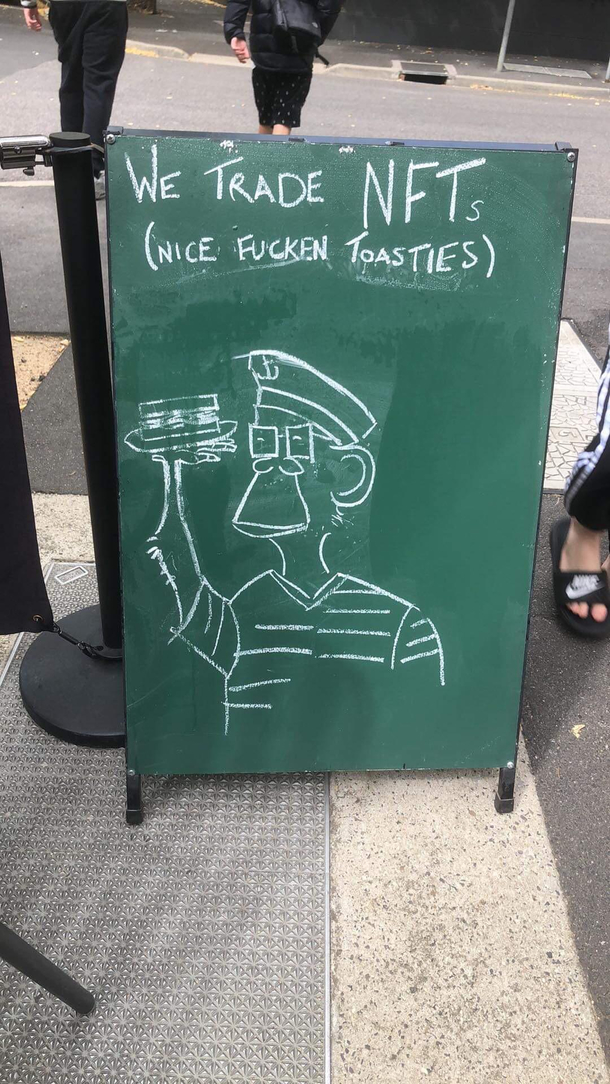 WE TRADE NFTs
(NICE FUCKEN TOASTIES)
NIKE